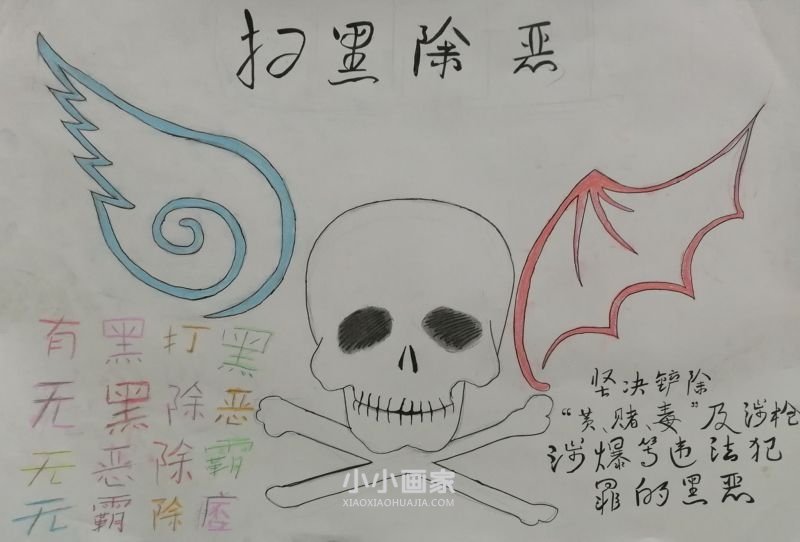 扫黑除恶
有黑打黑
无黑除恶
无恶除霸
无霸除痞
坚决铲除
“黄、赌、毒”及涉枪
涉爆等违法犯
罪的黑恶
小小画家
XIAOXIAOHUAJIA.COM